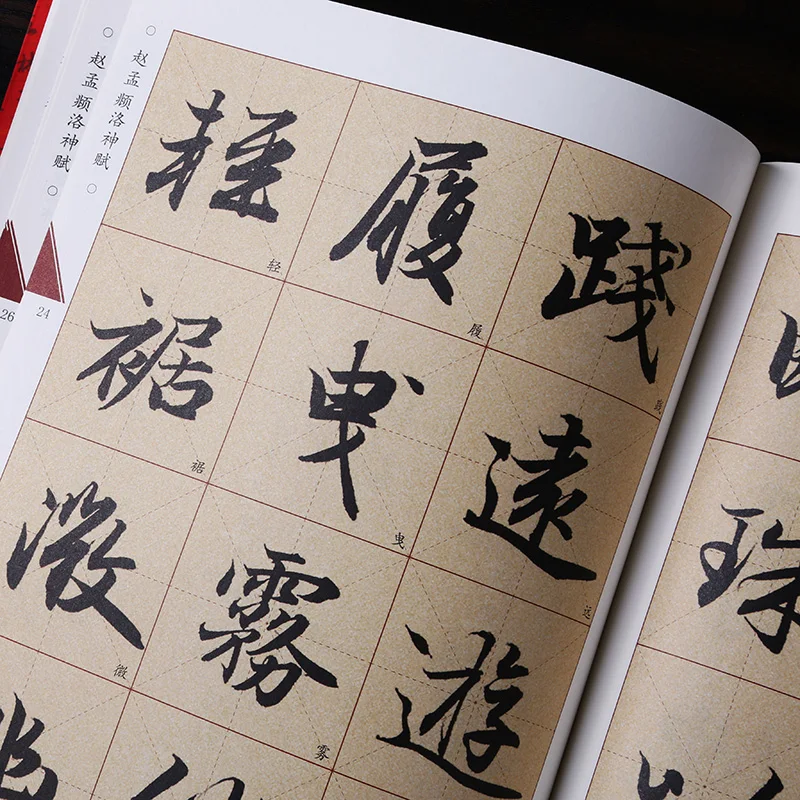 踐
践
遠
远
遊
履
履
曳
曳
霧
雾
輕
轻
裾
裾
微
微
赵孟頫洛神赋
24
赵孟頫洛神赋
26
珠